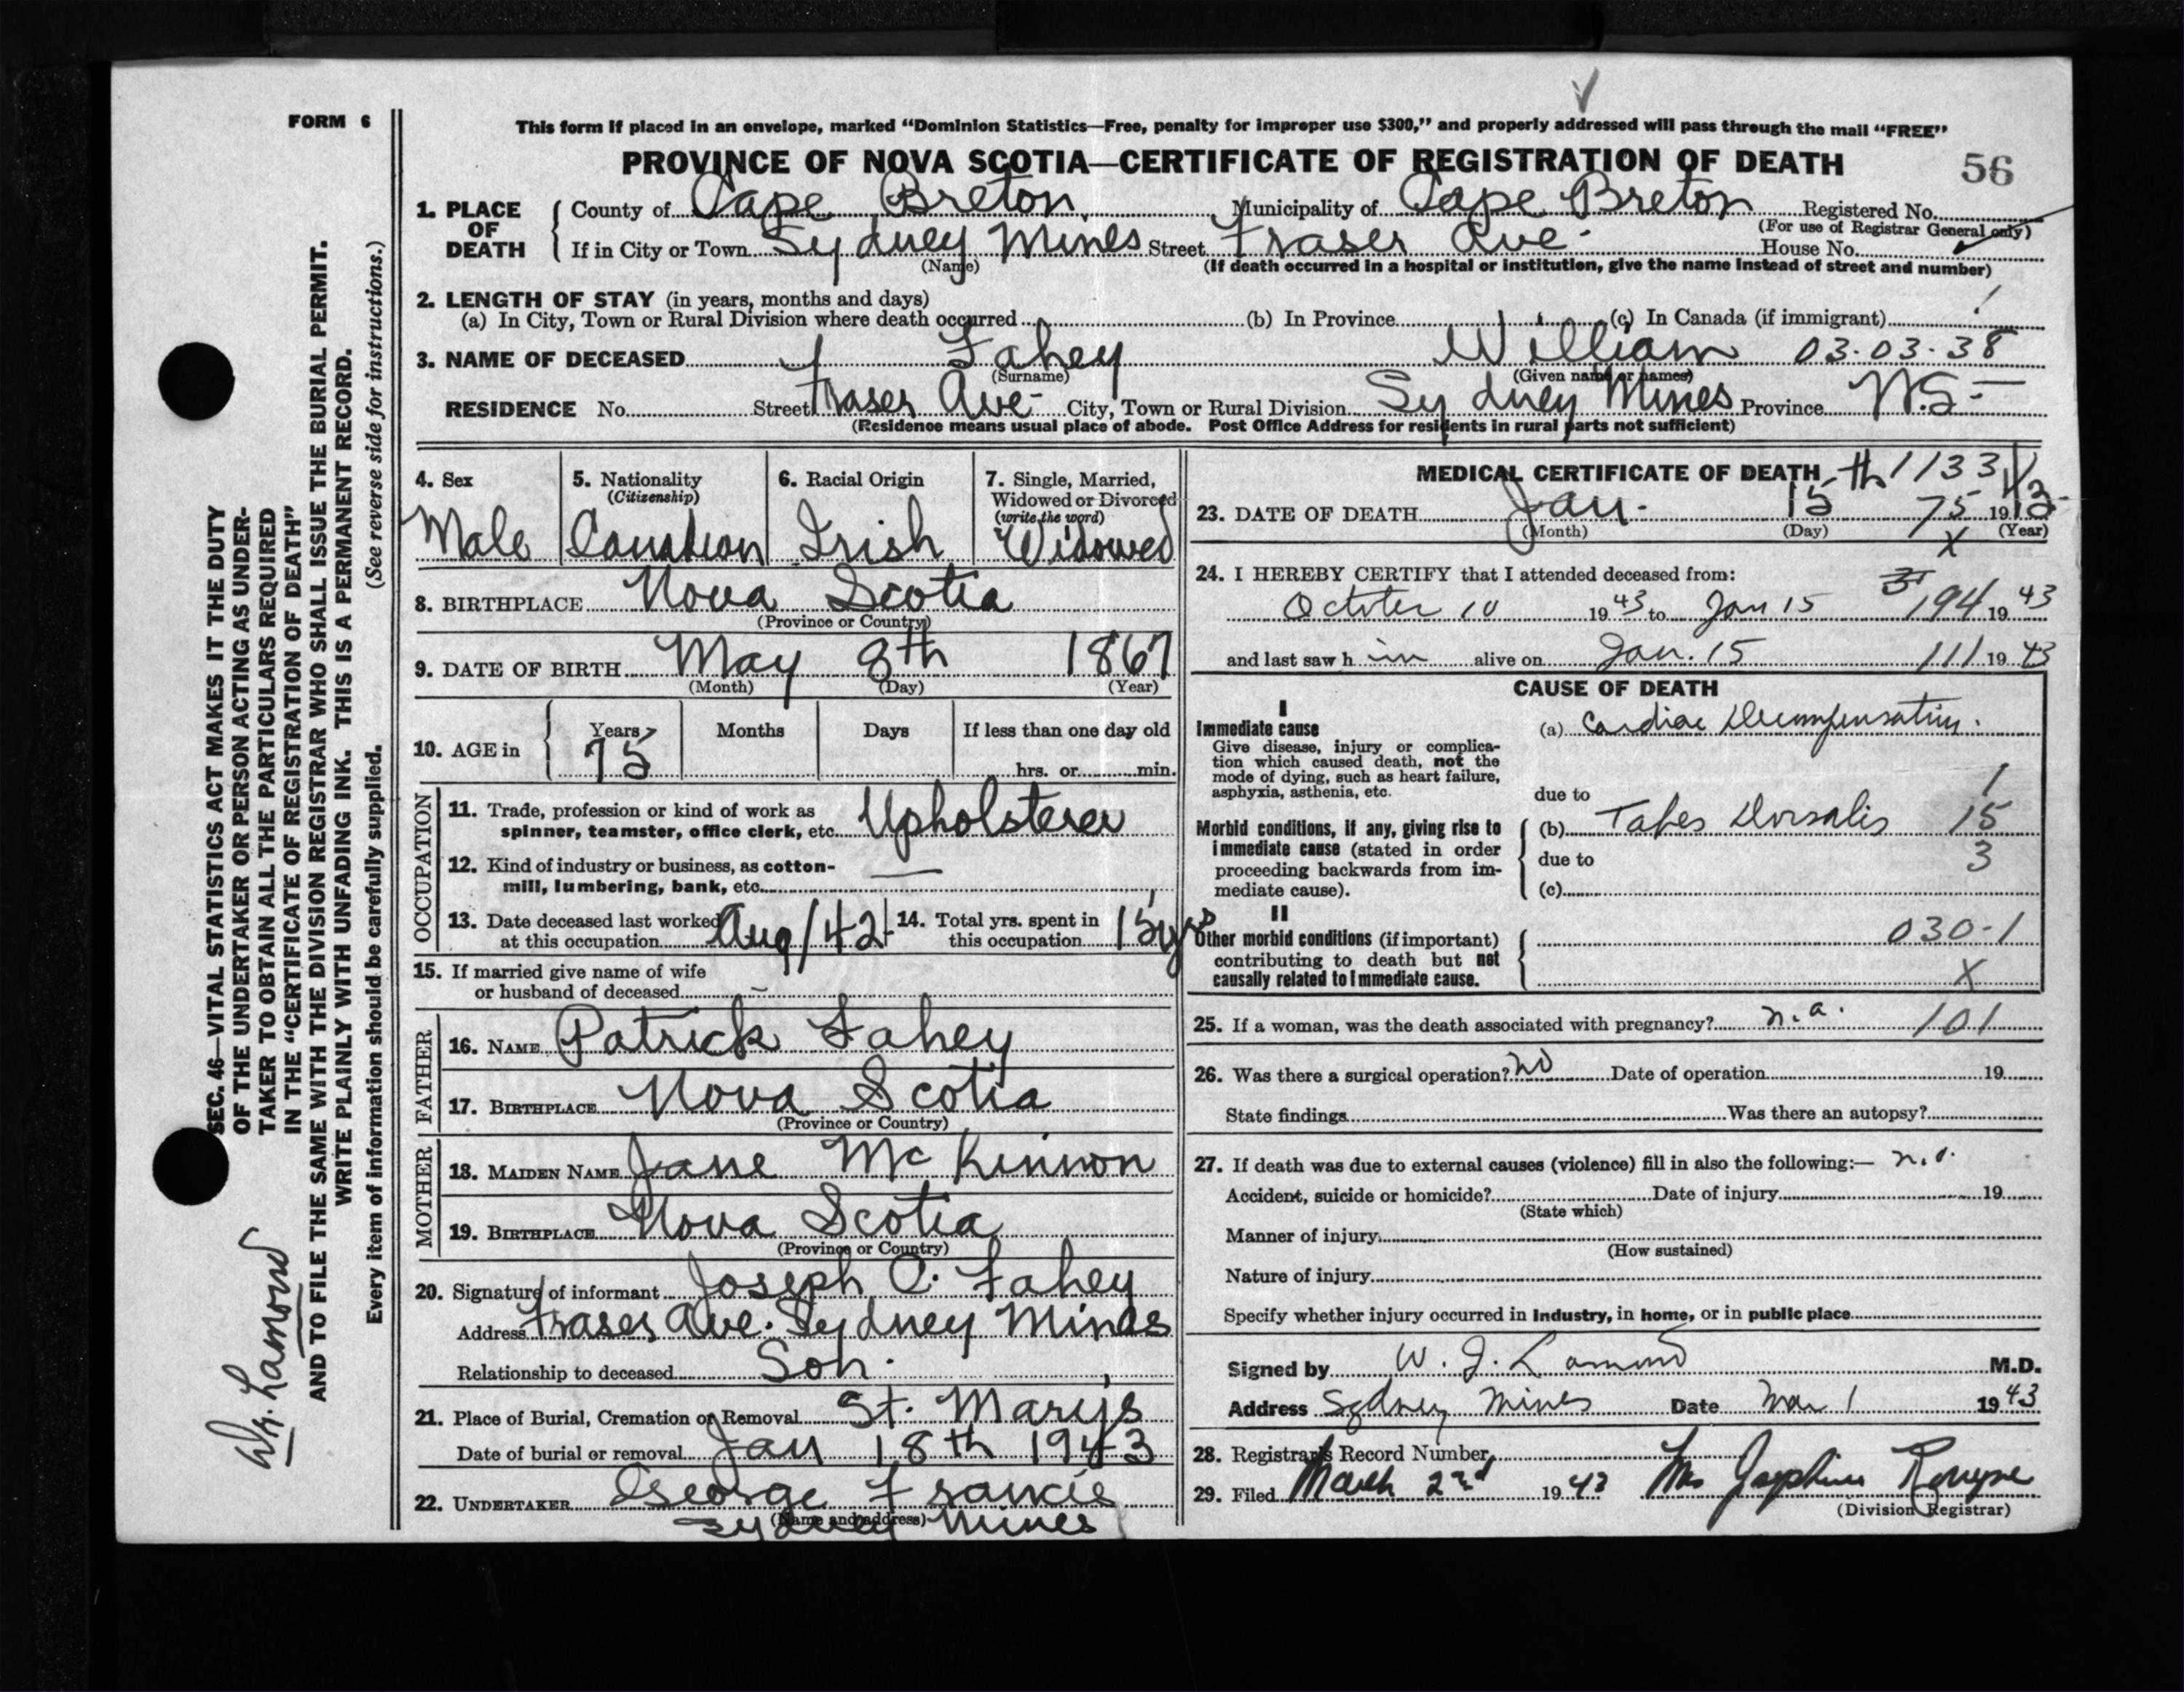 FORM 6
This form if placed in an envelope, marked "Dominion Statistics—Free, penalty for improper use $300," and properly addressed will pass through the mail "FREE"
PROVINCE OF NOVA SCOTIA—CERTIFICATE OF REGISTRATION OF DEATH
56
1. PLACE OF DEATH
County of Cape Breton Municipality of Cape Breton Registered No.
(For use of Registrar General only)
If in City or Town Sydney Mines Street Fraser Ave. House No.
(Name) (If death occurred in a hospital or institution, give the name instead of street and number)
2. LENGTH OF STAY (in years, months and days)
(a) In City, Town or Rural Division where death occurred (b) In Province (c) In Canada (if immigrant)
3. NAME OF DECEASED Fahey William 03-03-38
(Surname) (Given name or names)
RESIDENCE No. Street Fraser Ave- City, Town or Rural Division Sydney Mines Province N.S-
(Residence means usual place of abode. Post Office Address for residents in rural parts not sufficient)
4. Sex
Male
5. Nationality
(Citizenship)
Canadian
6. Racial Origin
Irish
7. Single, Married,
Widowed or Divorced
(write the word)
Widowed
8. BIRTHPLACE Nova Scotia
(Province or Country)
9. DATE OF BIRTH May 8th 1867
(Month) (Day) (Year)
10. AGE in Years Months Days If less than one day old
75 hrs. or min.
OCCUPATION
11. Trade, profession or kind of work as
spinner, teamster, office clerk, etc. Upholsterer
12. Kind of industry or business, as cotton-
mill, lumbering, bank, etc. —
13. Date deceased last worked
at this occupation Aug/42
14. Total yrs. spent in
this occupation 15 yrs
15. If married give name of wife
or husband of deceased –
FATHER
16. NAME Patrick Fahey
17. BIRTHPLACE Nova Scotia
(Province or Country)
MOTHER
18. MAIDEN NAME Jane McKinnon
19. BIRTHPLACE Nova Scotia
(Province or Country)
20. Signature of informant Joseph C. Fahey
Address Fraser Ave. Sydney Mines
Relationship to deceased Son.
21. Place of Burial, Cremation or Removal St. Mary's
Date of burial or removal Jan 18th 1943
22. UNDERTAKER George Francis
(Name and address)
Sydney Mines
MEDICAL CERTIFICATE OF DEATH 1133
23. DATE OF DEATH Jan. 15th 75 1943
(Month) (Day) (Year)
X
24. I HEREBY CERTIFY that I attended deceased from:
October 10 1943 to Jan 15 194 1943
and last saw him alive on Jan. 15 111 1943
CAUSE OF DEATH
I
Immediate cause
Give disease, injury or complica-
tion which caused death, not the
mode of dying, such as heart failure,
asphyxia, asthenia, etc.
(a) Cardiac Decompensation.
1
due to
Morbid conditions, if any, giving rise to
immediate cause (stated in order
proceeding backwards from im-
mediate cause).
(b) Tabes Dorsalis 15
due to 3
(c)
II
Other morbid conditions (if important)
contributing to death but not
causally related to immediate cause.
030-1
X
25. If a woman, was the death associated with pregnancy? n.a. 101
26. Was there a surgical operation? no Date of operation 19
State findings Was there an autopsy?
27. If death was due to external causes (violence) fill in also the following:—
Accident, suicide or homicide? Date of injury 19
(State which)
Manner of injury
(How sustained)
Nature of injury
Specify whether injury occurred in industry, in home, or in public place
Signed by W. J. Lamond M.D.
Address Sydney Mines Date Mar 1 1943
28. Registrar's Record Number
29. Filed March 2nd 1943 Mrs Josephine
(Division Registrar)
SEC. 46—VITAL STATISTICS ACT MAKES IT THE DUTY
OF THE UNDERTAKER OR PERSON ACTING AS UNDER-
TAKER TO OBTAIN ALL THE PARTICULARS REQUIRED
IN THE "CERTIFICATE OF REGISTRATION OF DEATH"
AND TO FILE THE SAME WITH THE DIVISION REGISTRAR WHO SHALL ISSUE THE BURIAL PERMIT.
WRITE PLAINLY WITH UNFADING INK. THIS IS A PERMANENT RECORD.
Every item of information should be carefully supplied. (See reverse side for instructions.)
Dr. Lamond